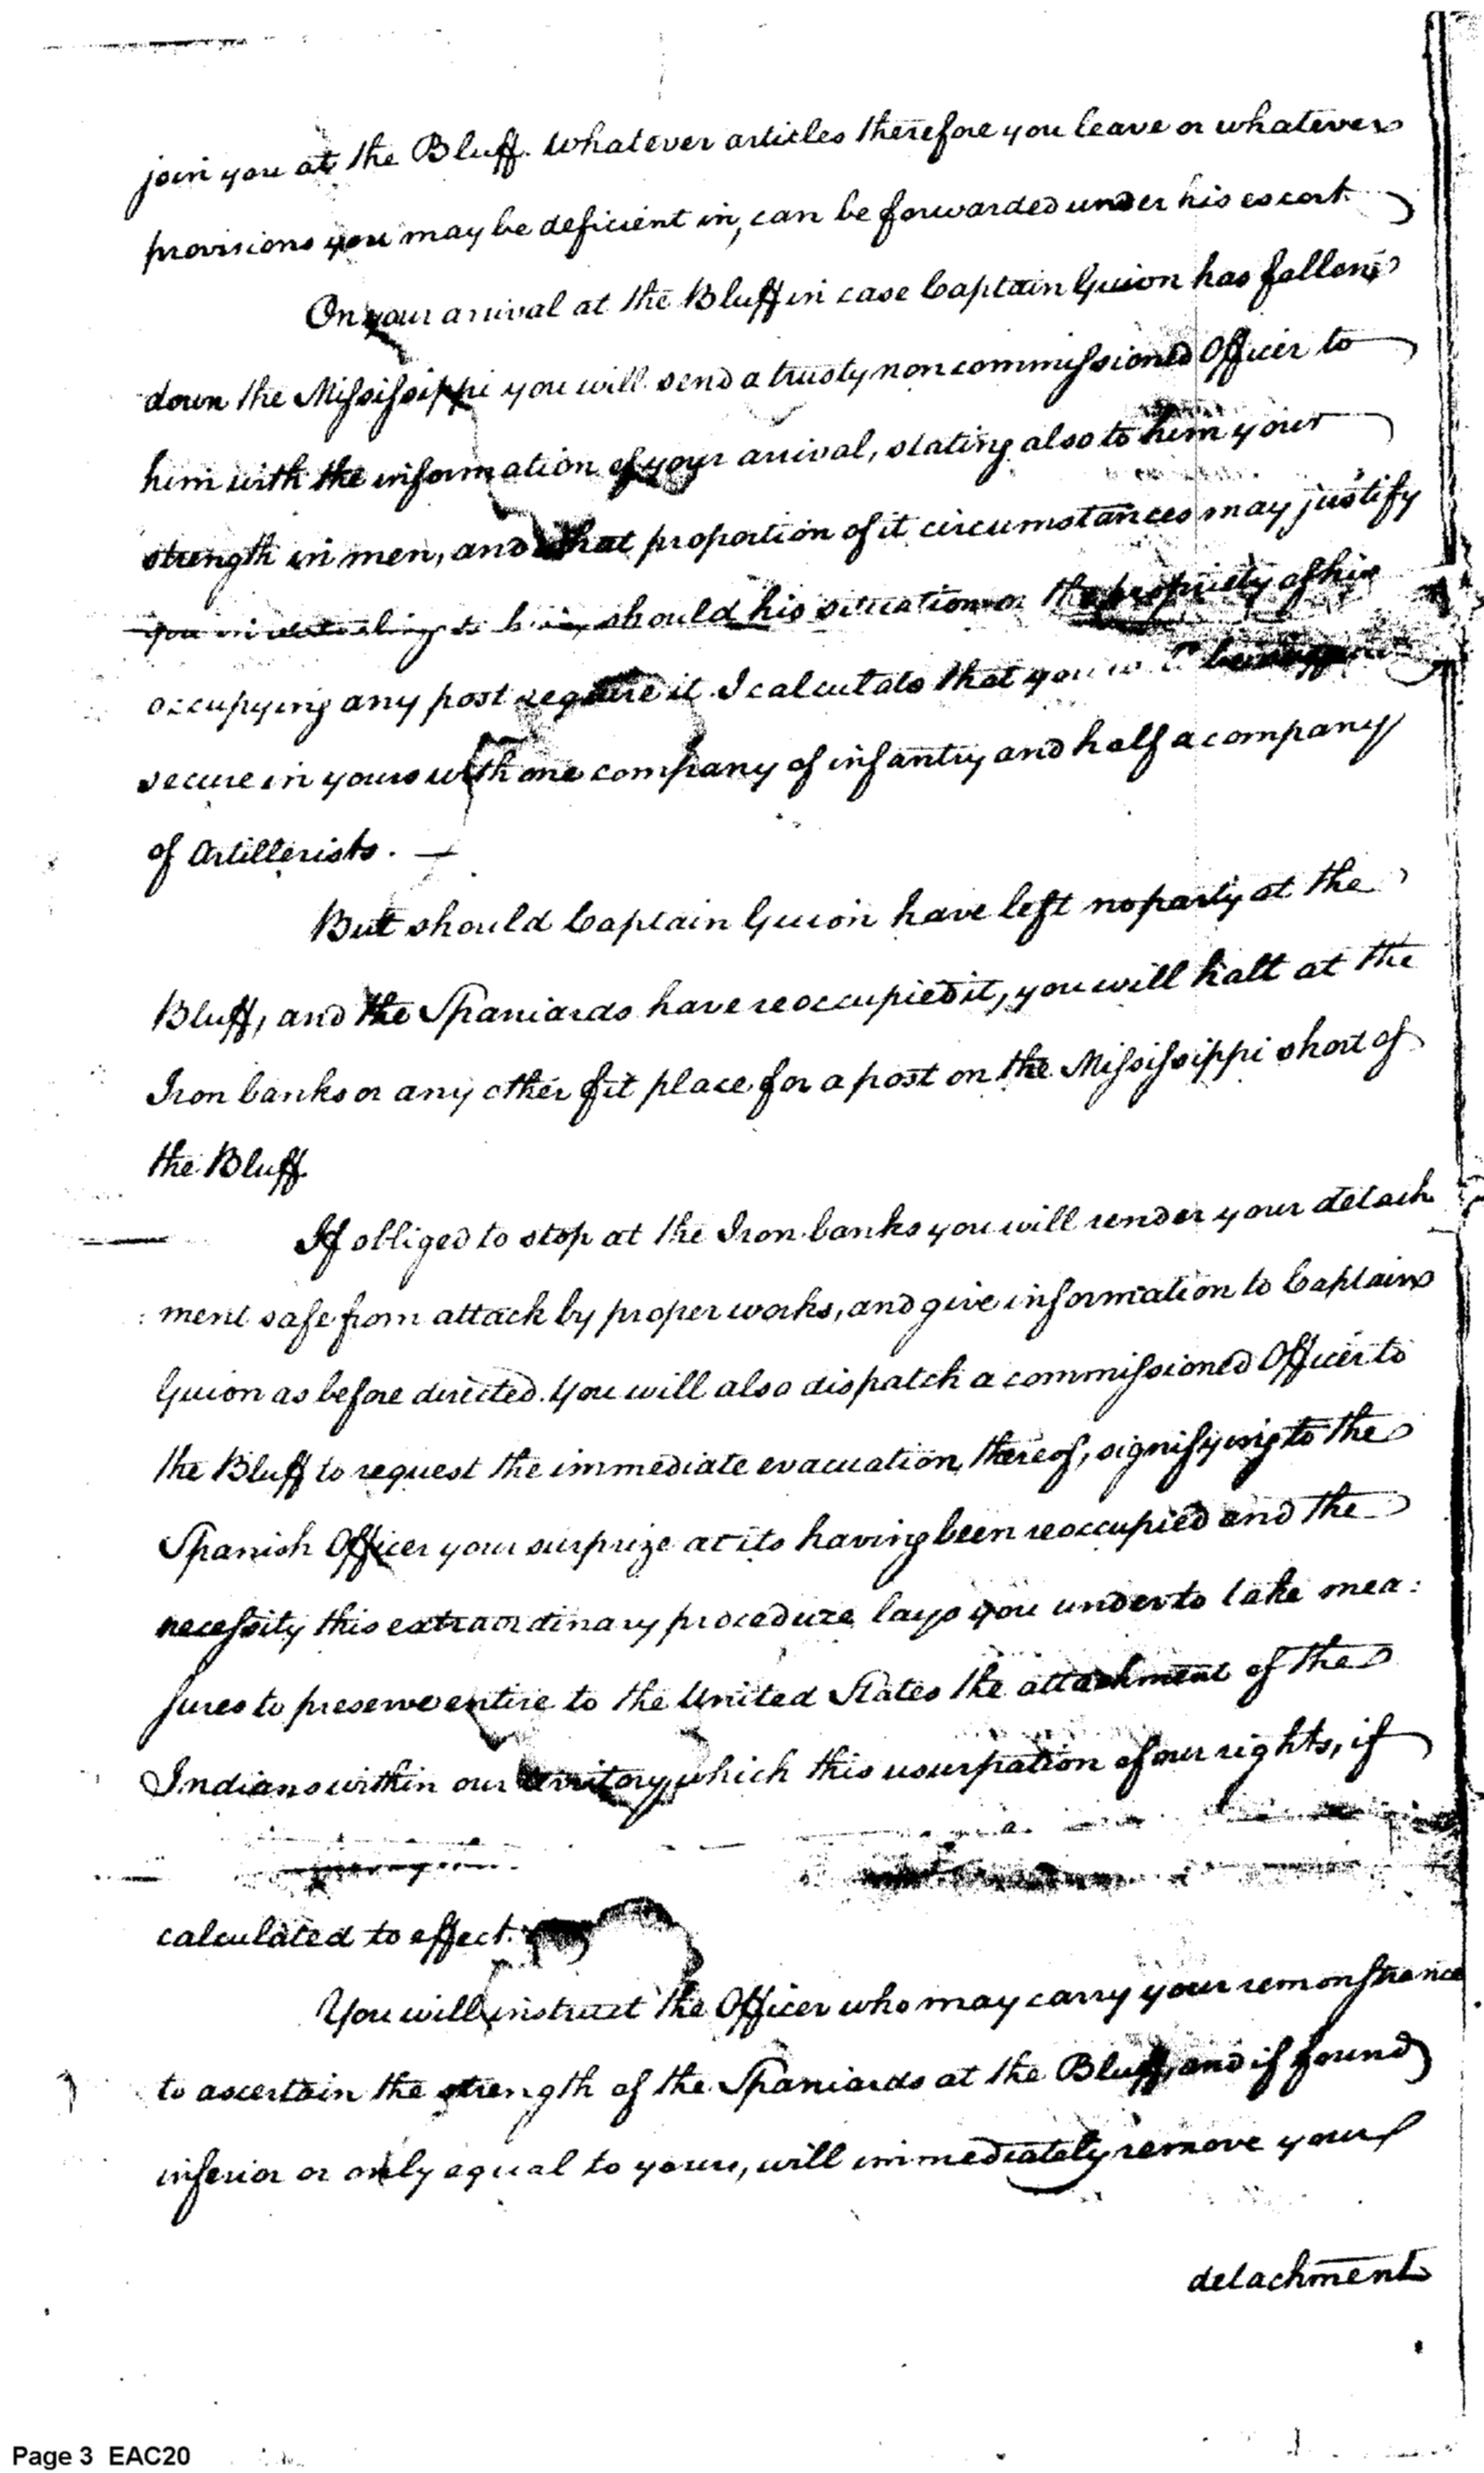 join you at the Bluff. Whatever articles therefore you leave or whatever
provisions you may be deficient in, can be forwarded under his escort.
On your arrival at the Bluff in case Captain Guion has fallen
down the Mississippi you will send a trusty noncommissioned Officer to
him with the information of your arrival, stating also to him your
strength in men, and what proportion of it circumstances may justify
you in detaching to him, should his situation or the propriety of his
occupying any post require it. I calculate that you
secure in yours with one company of infantry and half a company
of Artillerists. —
But should Captain Guion have left no party at the
Bluff, and the Spaniards have reoccupied it, you will halt at the
Iron banks or any other fit place for a post on the Mississippi short of
the Bluff.
If obliged to stop at the Iron banks you will render your detach
: ment safe from attack by proper works, and give information to Captain
Guion as before directed. You will also dispatch a commissioned Officer to
the Bluff to request the immediate evacuation thereof, signifying to the
Spanish Officer your surprize at its having been reoccupied and the
necessity this extraordinary procedure lays you under to take mea:
sures to preserve entire to the United States the attachment of the
Indians within our territory, which this usurpation of our rights, if
calculated to effect.
You will instruct the Officer who may carry your remonstrance
to ascertain the strength of the Spaniards at the Bluff, and if found
inferior or only equal to yours, will immediately remove your
detachment
Page 3 EAC20